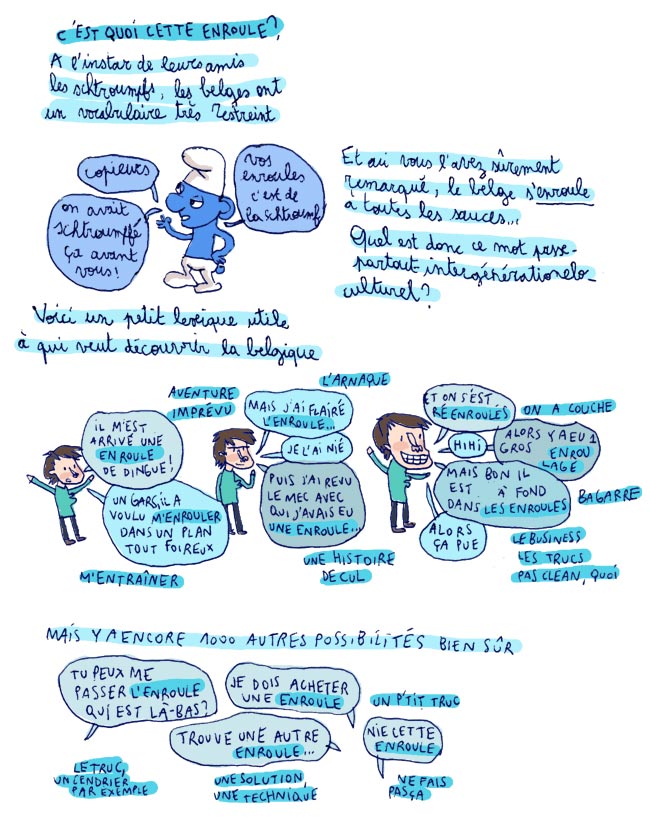 C'EST QUOI CETTE ENROULE?
A l'instar de leurs amis
les schtroumpfs, les belges ont
un vocabulaire très restreint
copieurs
on avait
schtroumpfé
ça avant
vous!
vos
enroules
c'est de
la schtroumf
Et oui vous l'avez sûrement
remarqué, le belge s'enroule
à toutes les sauces...
Quel est donc ce mot passe-
partout intergénérationelo-
culturel?
Voici un petit lexique utile
à qui veut découvrir la belgique
IL M'EST
ARRIVÉ UNE
ENROULE
DE DINGUE!
AVENTURE
IMPRÉVU
UN GARS, IL A
VOULU M'ENROULER
DANS UN PLAN
TOUT FOIREUX
M'ENTRAÎNER
L'ARNAQUE
MAIS J'AI FLAIRÉ
L'ENROULE...
JE L'AI NIÉ
PUIS J'AI REVU
LE MEC AVEC
QUI J'AVAIS EU
UNE ENROULE...
UNE HISTOIRE
DE CUL
ET ON S'EST
RÉENROULÉS
ON A COUCHE
HIHI
ALORS Y A EU 1
GROS ENROU
LAGE
BAGARRE
MAIS BON IL
EST À FOND
DANS LES ENROULES
ALORS
ÇA PUE
LE BUSINESS
LES TRUCS
PAS CLEAN, QUOI
MAIS Y A ENCORE 1000 AUTRES POSSIBILITÉS BIEN SÛR
TU PEUX ME
PASSER L'ENROULE
QUI EST LÀ-BAS?
LE TRUC,
UN CENDRIER
PAR EXEMPLE
JE DOIS ACHETER
UNE ENROULE
UN P'TIT TRUC
TROUVE UNE AUTRE
ENROULE...
UNE SOLUTION,
UNE TECHNIQUE
NIE CETTE
ENROULE
NE FAIS
PAS ÇA